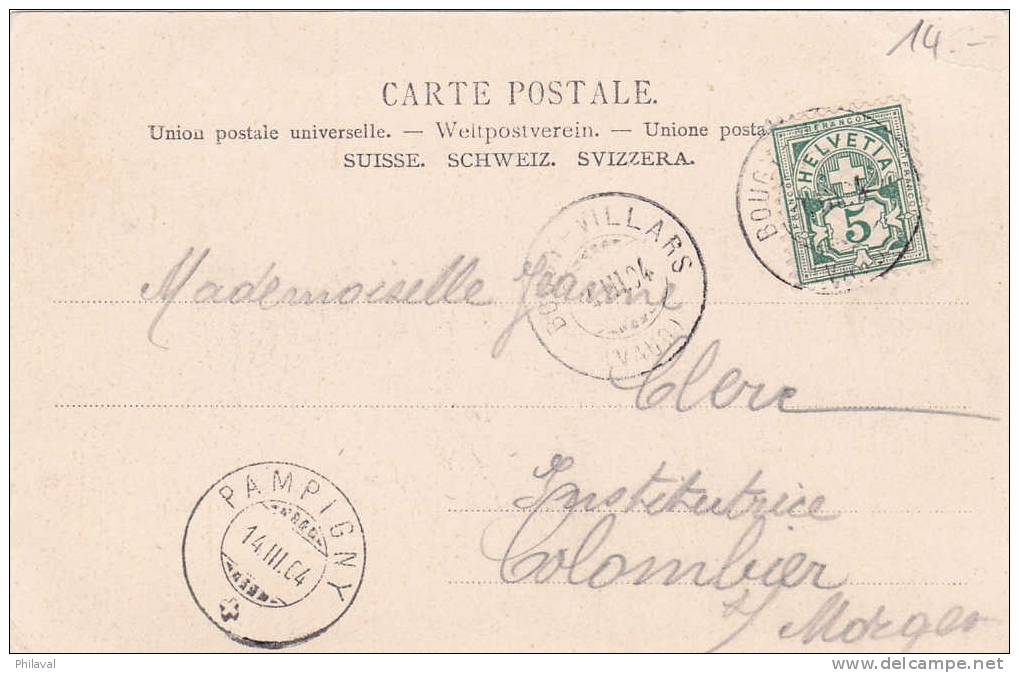 14.-
CARTE POSTALE.
Union postale universelle. — Weltpostverein. — Unione posta
SUISSE. SCHWEIZ. SVIZZERA.
FRANCO
HELVETIA
FRANCO
FRANCO
5
BOUG
VILLARS
III.04
(VAUD)
Mademoiselle Jeanne
Clerc
Institutrice
Colombier
s/ Morges
PAMPIGNY
14.III.04
Philaval
delcampe.net